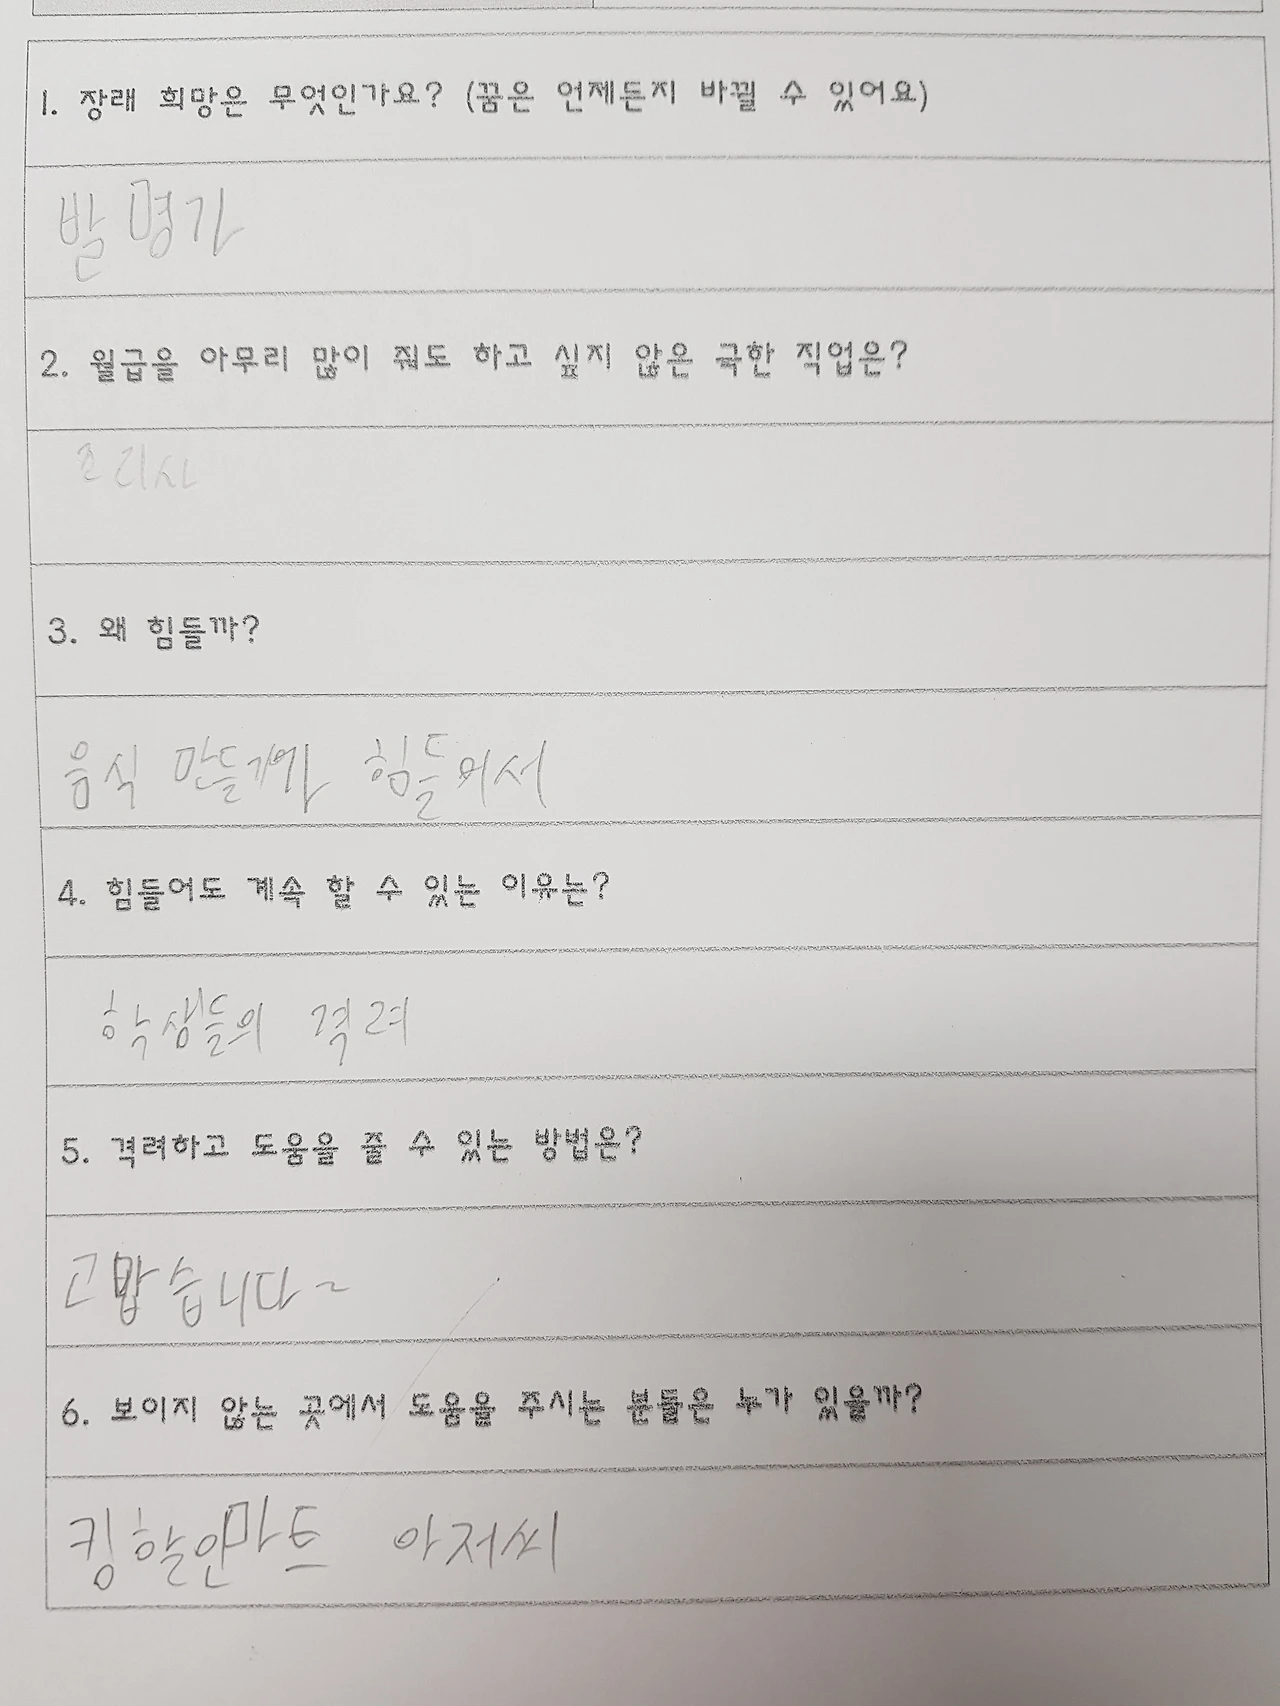 1. 장래 희망은 무엇인가요? (꿈은 언제든지 바뀔 수 있어요)
발명가
2. 월급을 아무리 많이 줘도 하고 싶지 않은 극한 직업은?
조리사
3. 왜 힘들까?
음식 만들기가 힘들어서
4. 힘들어도 계속 할 수 있는 이유는?
학생들의 격려
5. 격려하고 도움을 줄 수 있는 방법은?
고맙습니다~
6. 보이지 않는 곳에서 도움을 주시는 분들은 누가 있을까?
킹할인마트 아저씨